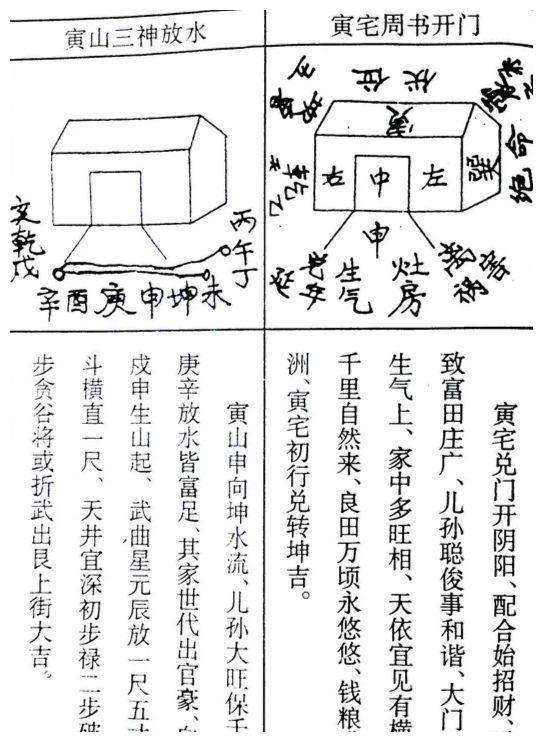 寅宅周书开门
伏位
寅
绝命
巽
右 中 左
申
生气
灶房
祸
寅宅兑门开阴阳、配合始招财、
致富田庄广、儿孙聪俊事和谐、大门
生气上、家中多旺相、天依宜见有横
千里自然来、良田万顷永悠悠、钱粮
洲、寅宅初行兑转坤吉。
寅山三神放水
丙午丁
乾戌
辛酉庚申坤未
寅山申向坤水流、儿孙大旺保
庚辛放水皆富足、其家世代出官豪、
戌申生山起、武曲星元辰放一尺五
斗横直一尺、天井宜深初步禄二步破
步贪谷将或折武出艮上街大吉。